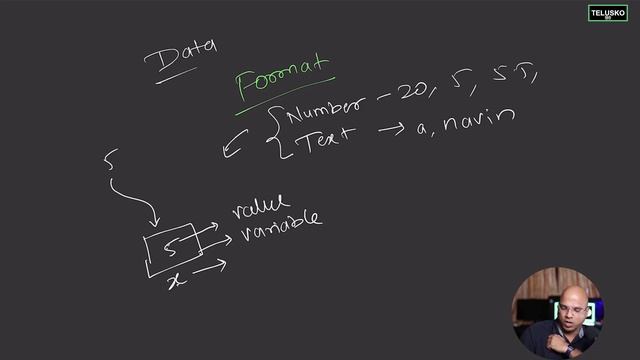 TELUSKO
Data
Format
Number - 20, 5, 5.5,
Text → a, navin
5
value
5
variable
x